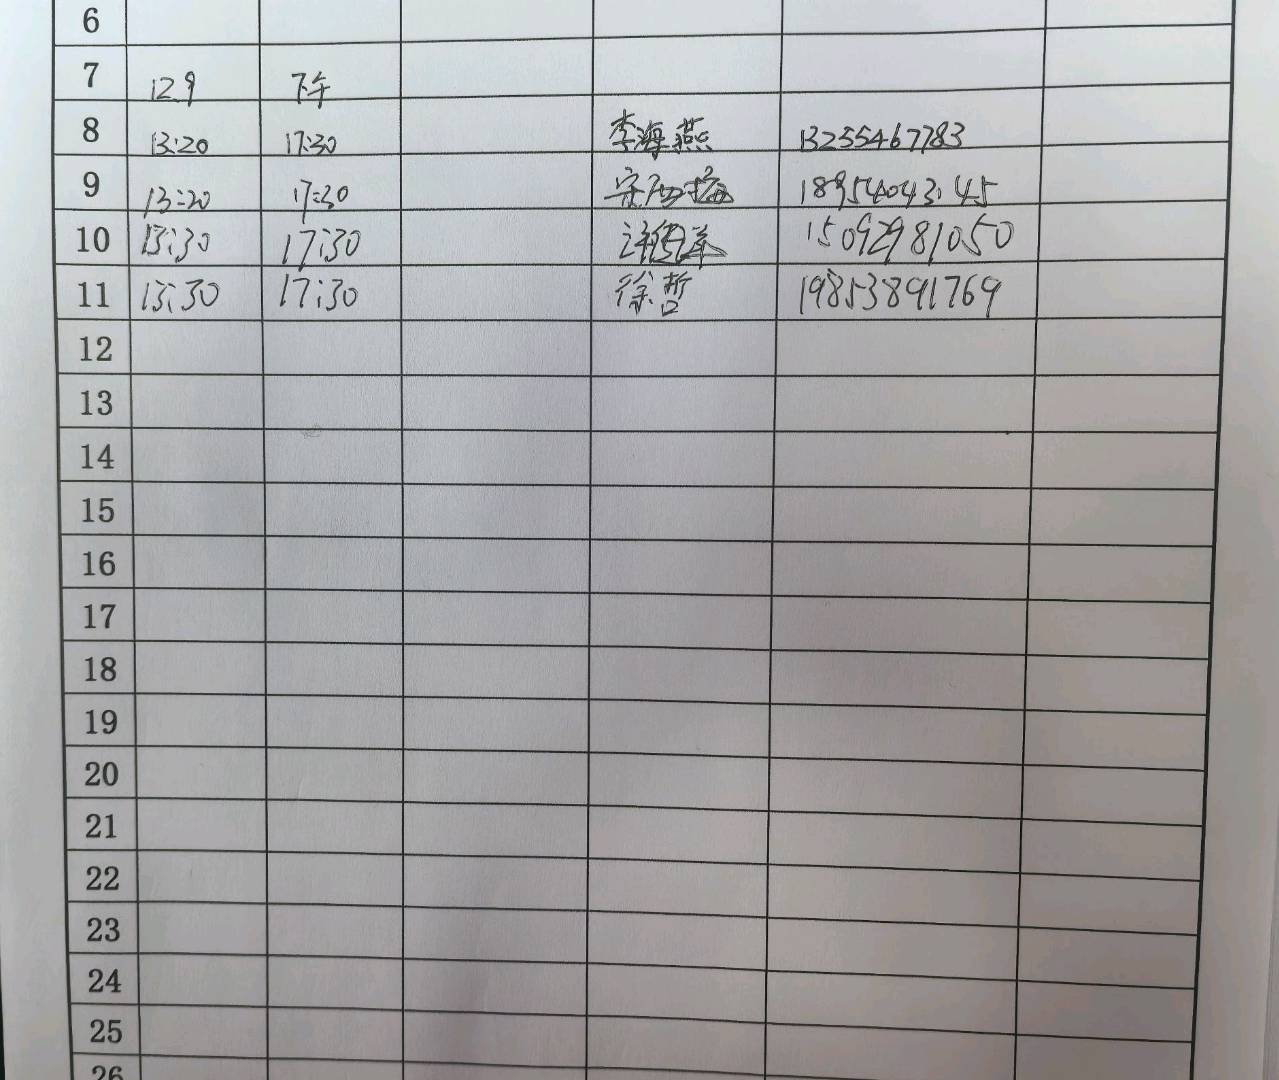 6
7 12.9 下午
8 13:20 17:30 李海燕 13255467783
9 13:20 17:30
10 13:30 17:30 15092981050
11 13:30 17:30 徐哲 19853891769
12
13
14
15
16
17
18
19
20
21
22
23
24
25
26